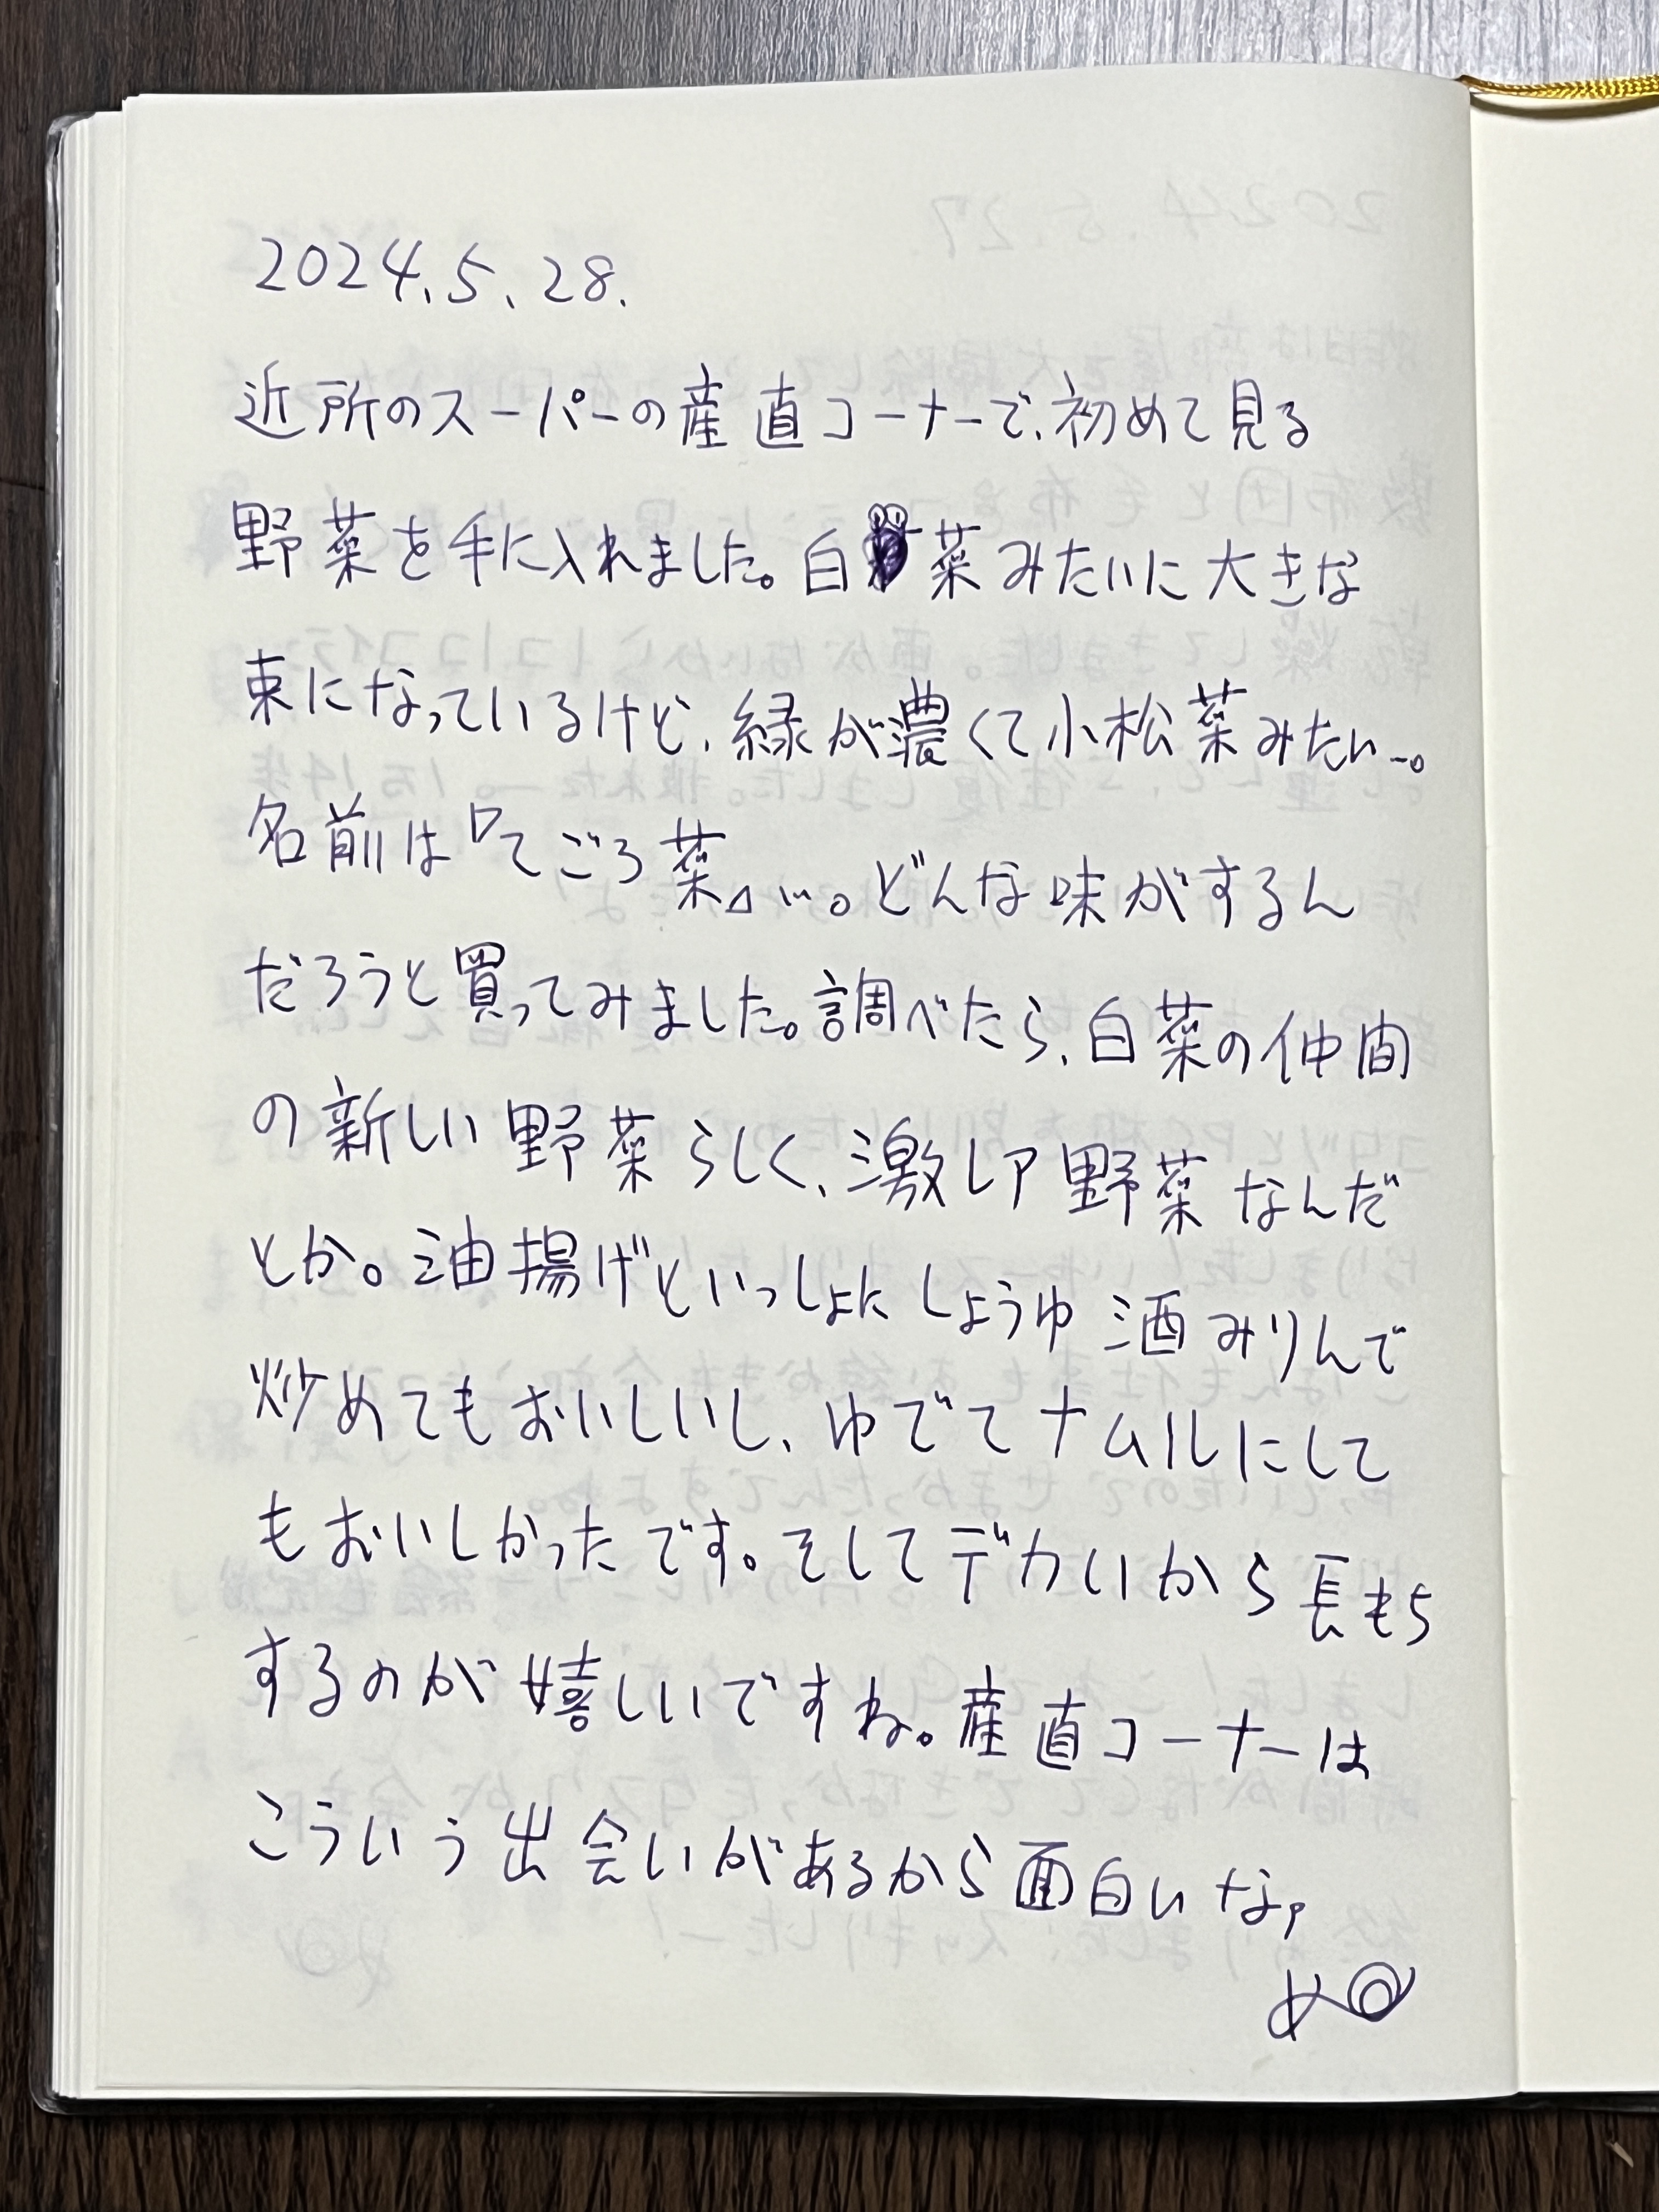 2024.5.28.
近所のスーパーの産直コーナーで、初めて見る
野菜を手に入れました。白菜みたいに大きな
束になっているけど、緑が濃くて小松菜みたい〜。
名前は『てごろ菜』…。どんな味がするん
だろうと買ってみました。調べたら、白菜の仲間
の新しい野菜らしく、激レア野菜なんだ
とか。油揚げといっしょにしょうゆ酒みりんで
炒めてもおいしいし、ゆでてナムルにして
もおいしかったです。そしてデカいから長もち
するのが嬉しいですね。産直コーナーは
こういう出会いがあるから面白いな。
め